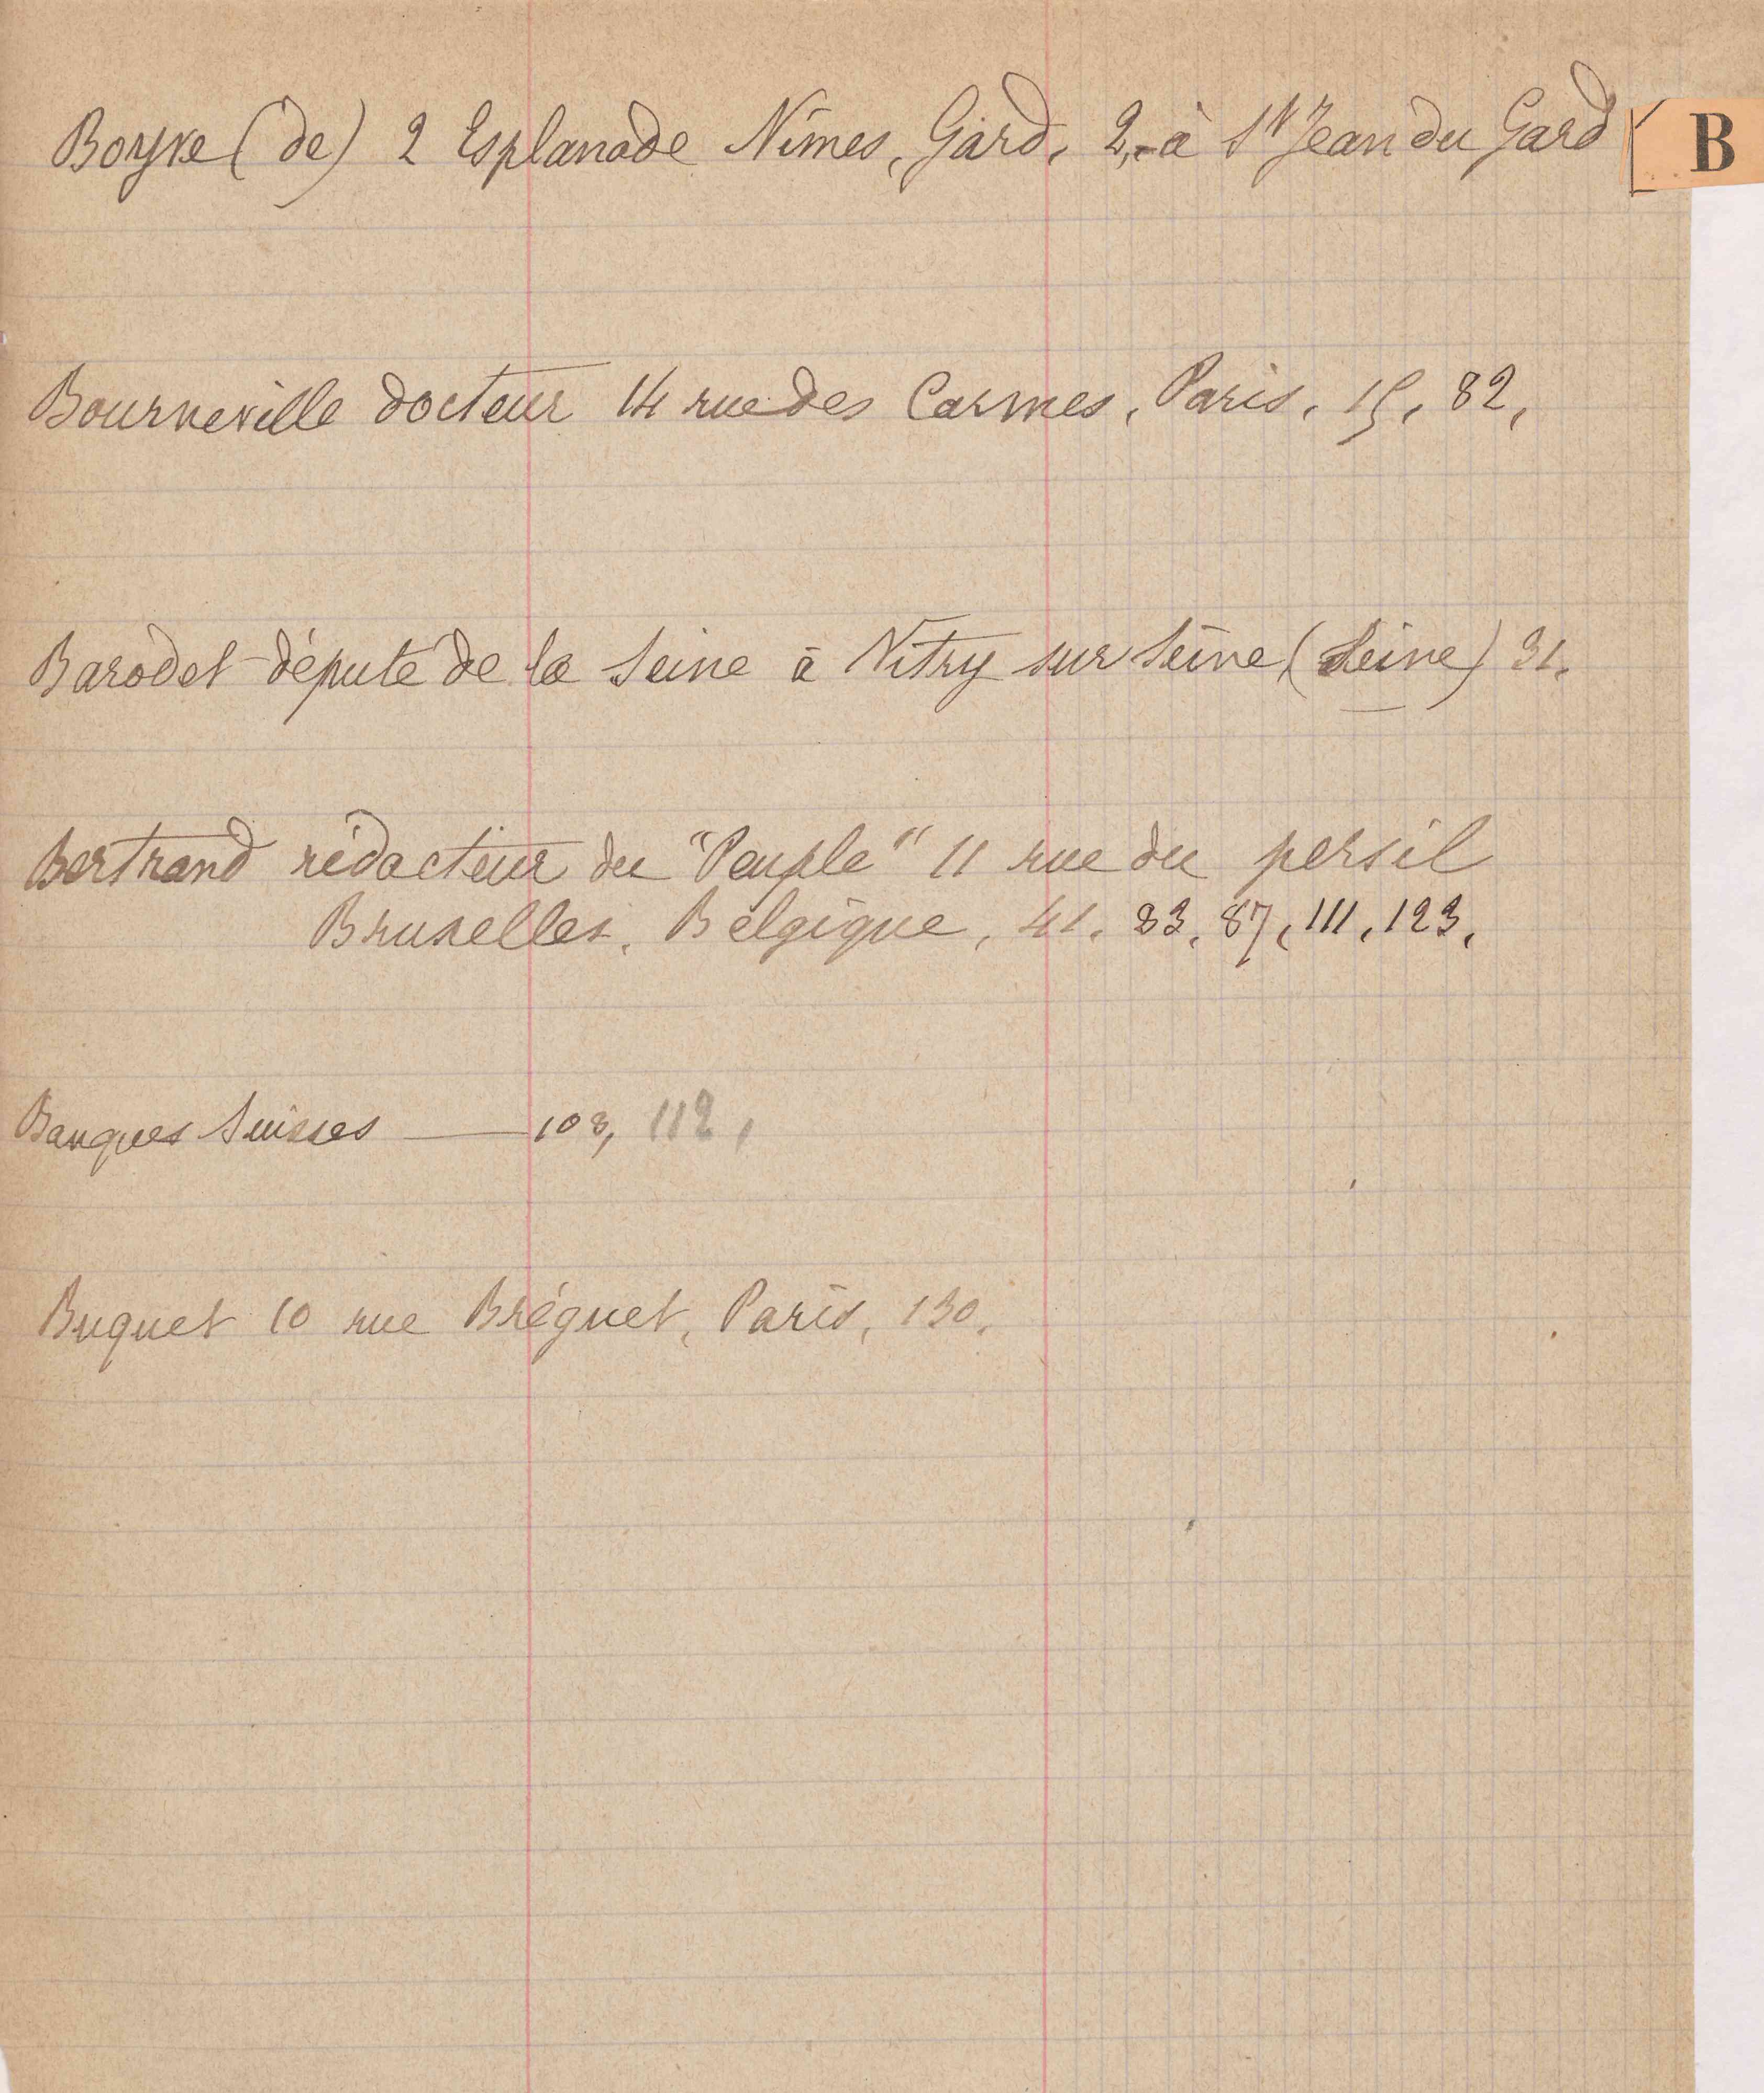 Boyve (de) 2 Esplanade Nîmes, Gard. 2,- à St Jean du Gard
B
Bourneville docteur 14 rue des Carmes, Paris, 15, 82,
Barodet député de la Seine à Vitry sur Seine (Seine) 31.
Bertrand rédacteur du "Peuple" 11 rue du persil
Bruxelles, Belgique, 41. 83, 87, 111, 123,
Banques Suisses — 103, 112,
Buquet 10 rue Bréguet, Paris, 130,